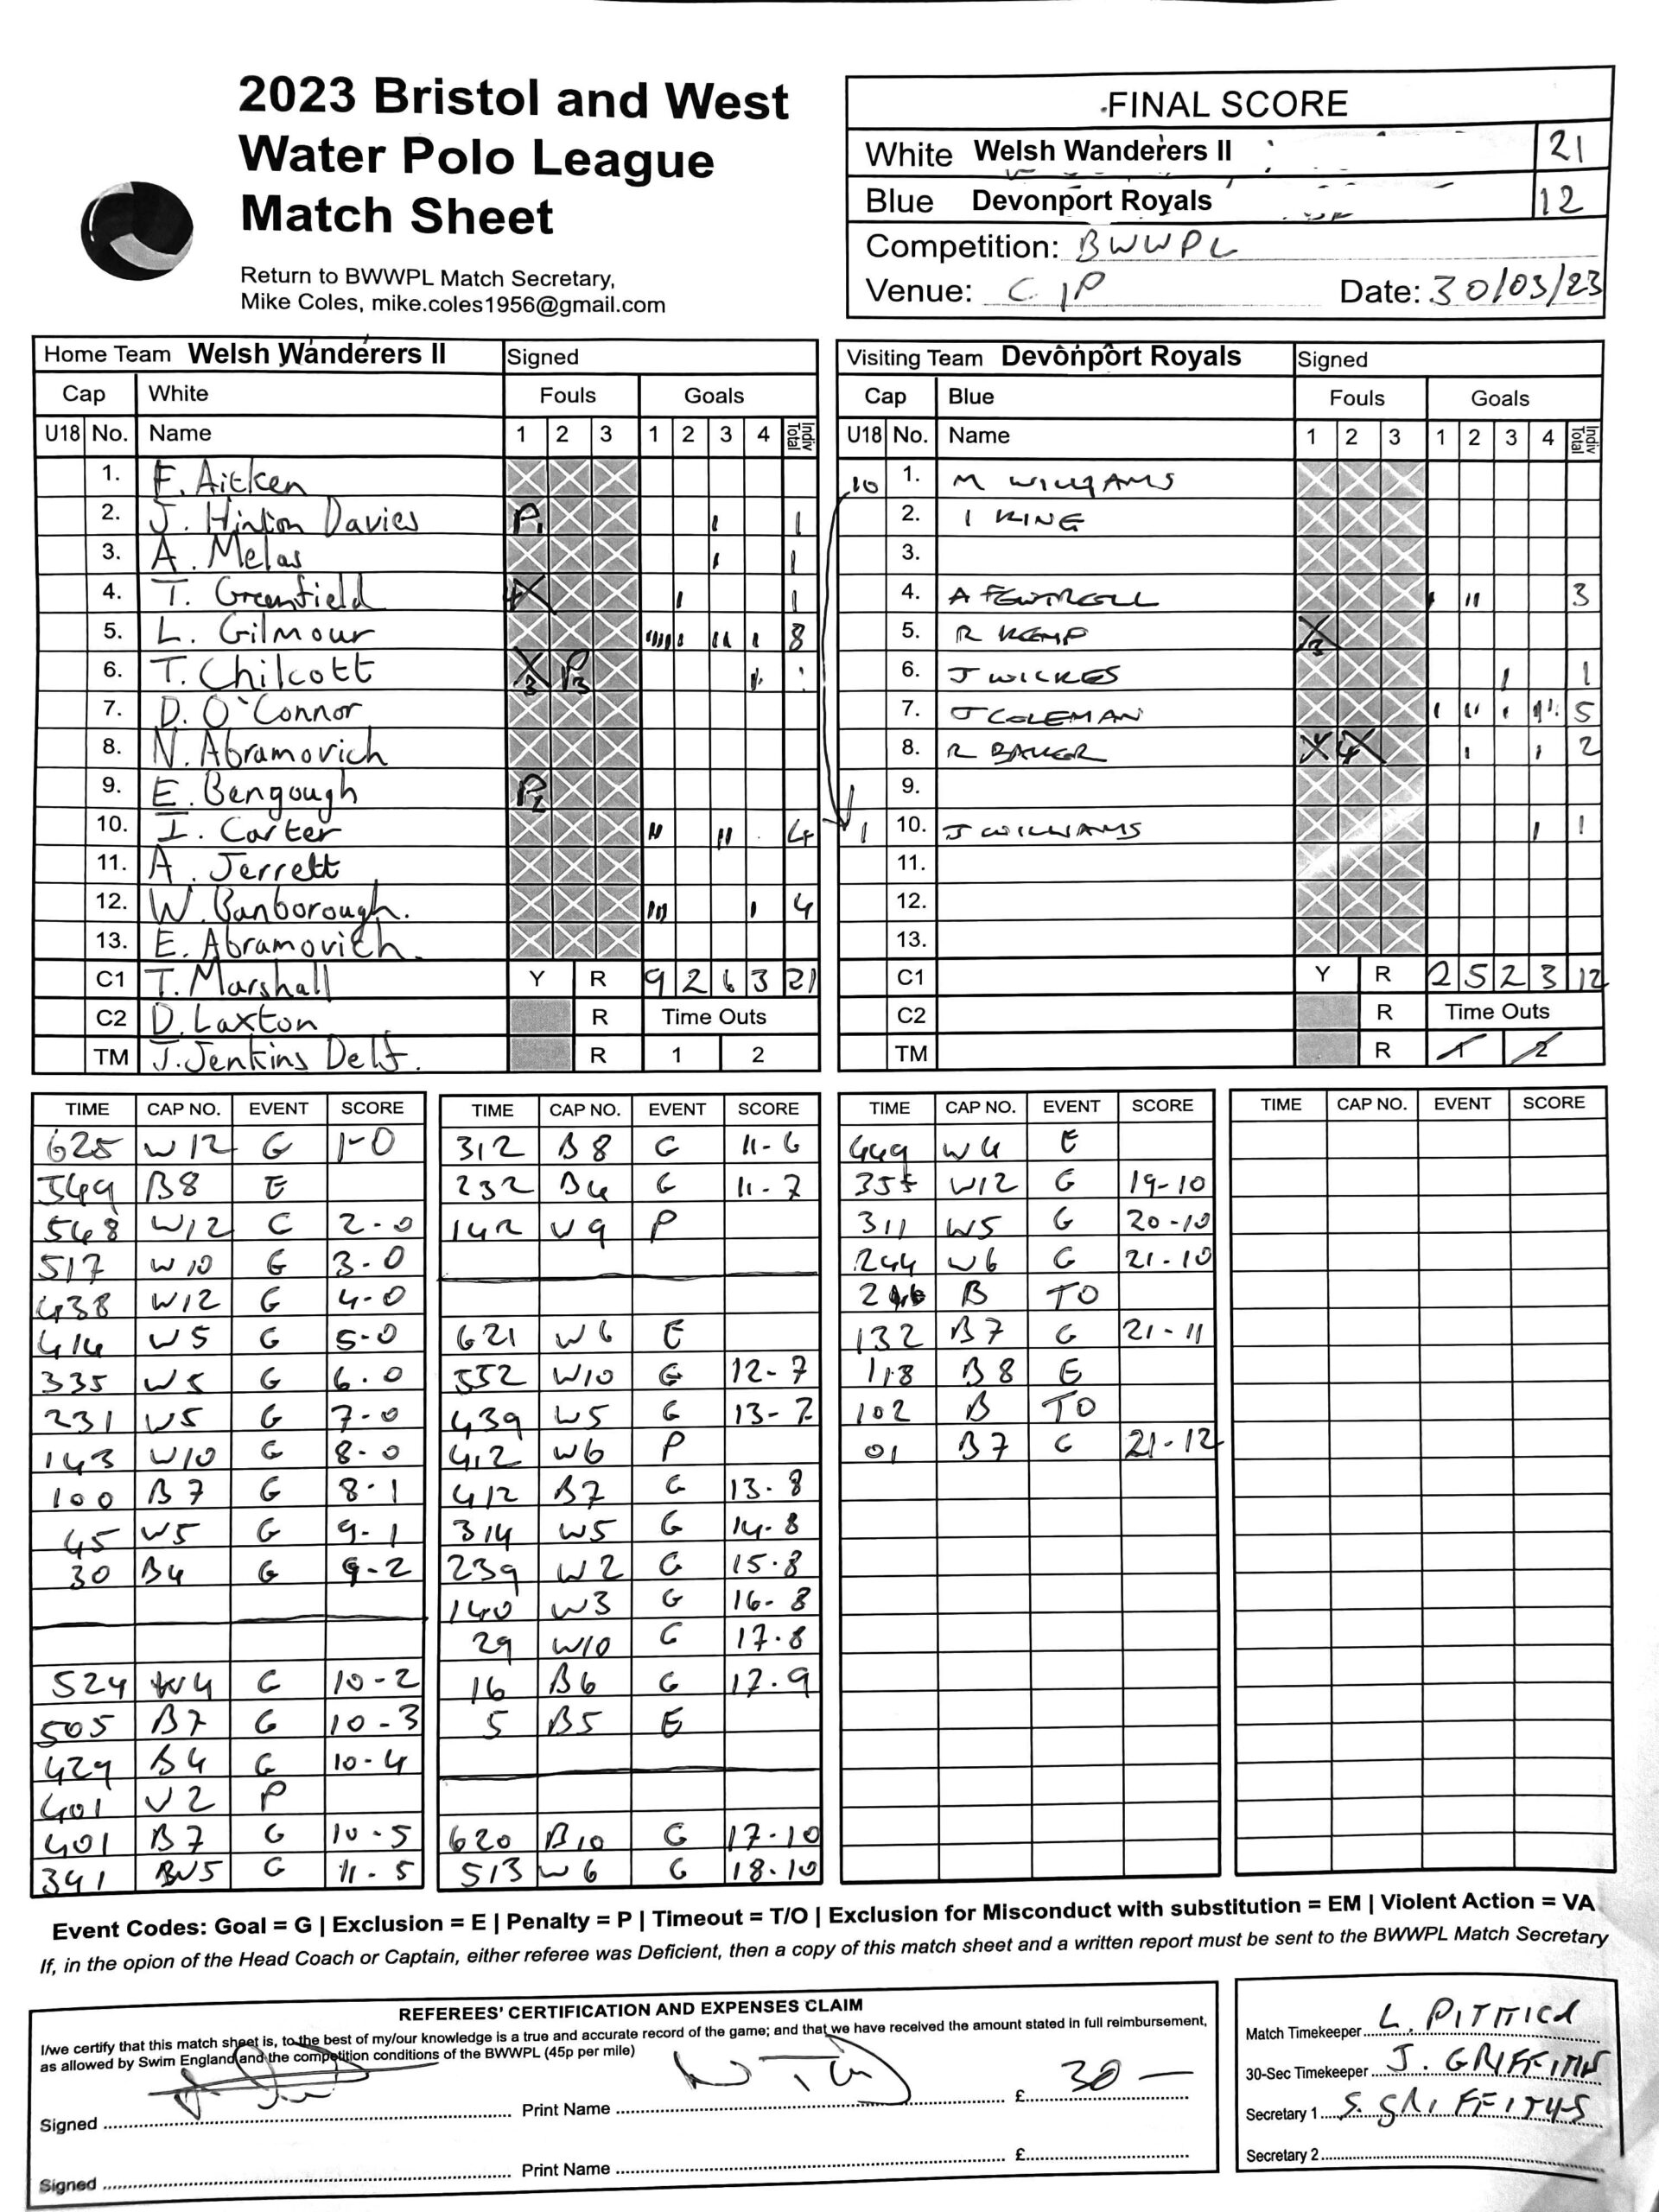 2023 Bristol and West
Water Polo League
Match Sheet
Return to BWWPL Match Secretary,
Mike Coles, mike.coles1956@gmail.com
FINAL SCORE
White Welsh Wanderers II 21
Blue Devonport Royals 12
Competition: BWWPL
Venue: C.I.P Date: 30/03/23
Home Team Welsh Wanderers II Signed
Cap White Fouls Goals
U18 No. Name 1 2 3 1 2 3 4 Indiv Total
1. F. Aitken
2. J. Hinton Davies P1 I 1
3. A. Melas I 1
4. T. Greenfield I 1
5. L. Gilmour IIII I II I 8
6. T. Chilcott X3 P3
7. D. O'Connor
8. N. Abramovich
9. E. Bengough P2
10. I. Carter II II 4
11. A. Jerrett
12. W. Banborough. III I 4
13. E. Abramovich.
C1 T. Marshall Y R 9 2 6 3 21
C2 D. Laxton R Time Outs
TM J. Jenkins Delf. R 1 2
Visiting Team Devonport Royals Signed
Cap Blue Fouls Goals
U18 No. Name 1 2 3 1 2 3 4 Indiv Total
10 1. M WILLIAMS
2. I KING
3.
4. A FEWTRELL I II 3
5. R KEMP X3
6. J WICKES I 1
7. J COLEMAN I II I II 5
8. R BAKER X X4 I I 2
9.
1 10. J WILLIAMS I 1
11.
12.
13.
C1 Y R 2 5 2 3 12
C2 R Time Outs
TM R 1 2
TIME CAP NO. EVENT SCORE
625 W12 G 1-0
549 B8 E
548 W12 G 2-0
517 W10 G 3-0
438 W12 G 4-0
414 W5 G 5-0
335 W5 G 6-0
231 W5 G 7-0
143 W10 G 8-0
100 B7 G 8-1
45 W5 G 9-1
30 B4 G 9-2
524 W4 G 10-2
505 B7 G 10-3
429 B4 G 10-4
401 W2 P
401 B7 G 10-5
341 W5 G 11-5
TIME CAP NO. EVENT SCORE
312 B8 G 11-6
232 B4 G 11-7
142 W9 P
621 W6 E
552 W10 G 12-7
439 W5 G 13-7
412 W6 P
412 B7 G 13-8
314 W5 G 14-8
239 W2 G 15-8
140 W3 G 16-8
29 W10 G 17-8
16 B6 G 17-9
5 B5 E
620 B10 G 17-10
513 W6 G 18-10
TIME CAP NO. EVENT SCORE
449 W4 E
355 W12 G 19-10
311 W5 G 20-10
244 W6 G 21-10
B TO
132 B7 G 21-11
118 B8 E
102 B TO
01 B7 G 21-12
TIME CAP NO. EVENT SCORE
Event Codes: Goal = G | Exclusion = E | Penalty = P | Timeout = T/O | Exclusion for Misconduct with substitution = EM | Violent Action = VA
If, in the opion of the Head Coach or Captain, either referee was Deficient, then a copy of this match sheet and a written report must be sent to the BWWPL Match Secretary
REFEREES' CERTIFICATION AND EXPENSES CLAIM
I/we certify that this match sheet is, to the best of my/our knowledge is a true and accurate record of the game; and that we have received the amount stated in full reimbursement,
as allowed by Swim England and the competition conditions of the BWWPL (45p per mile)
Signed Print Name £ 30 —
Signed Print Name £
Match Timekeeper L. PITTICK
30-Sec Timekeeper J. GRIFFITHS
Secretary 1 S. GRIFFITHS
Secretary 2